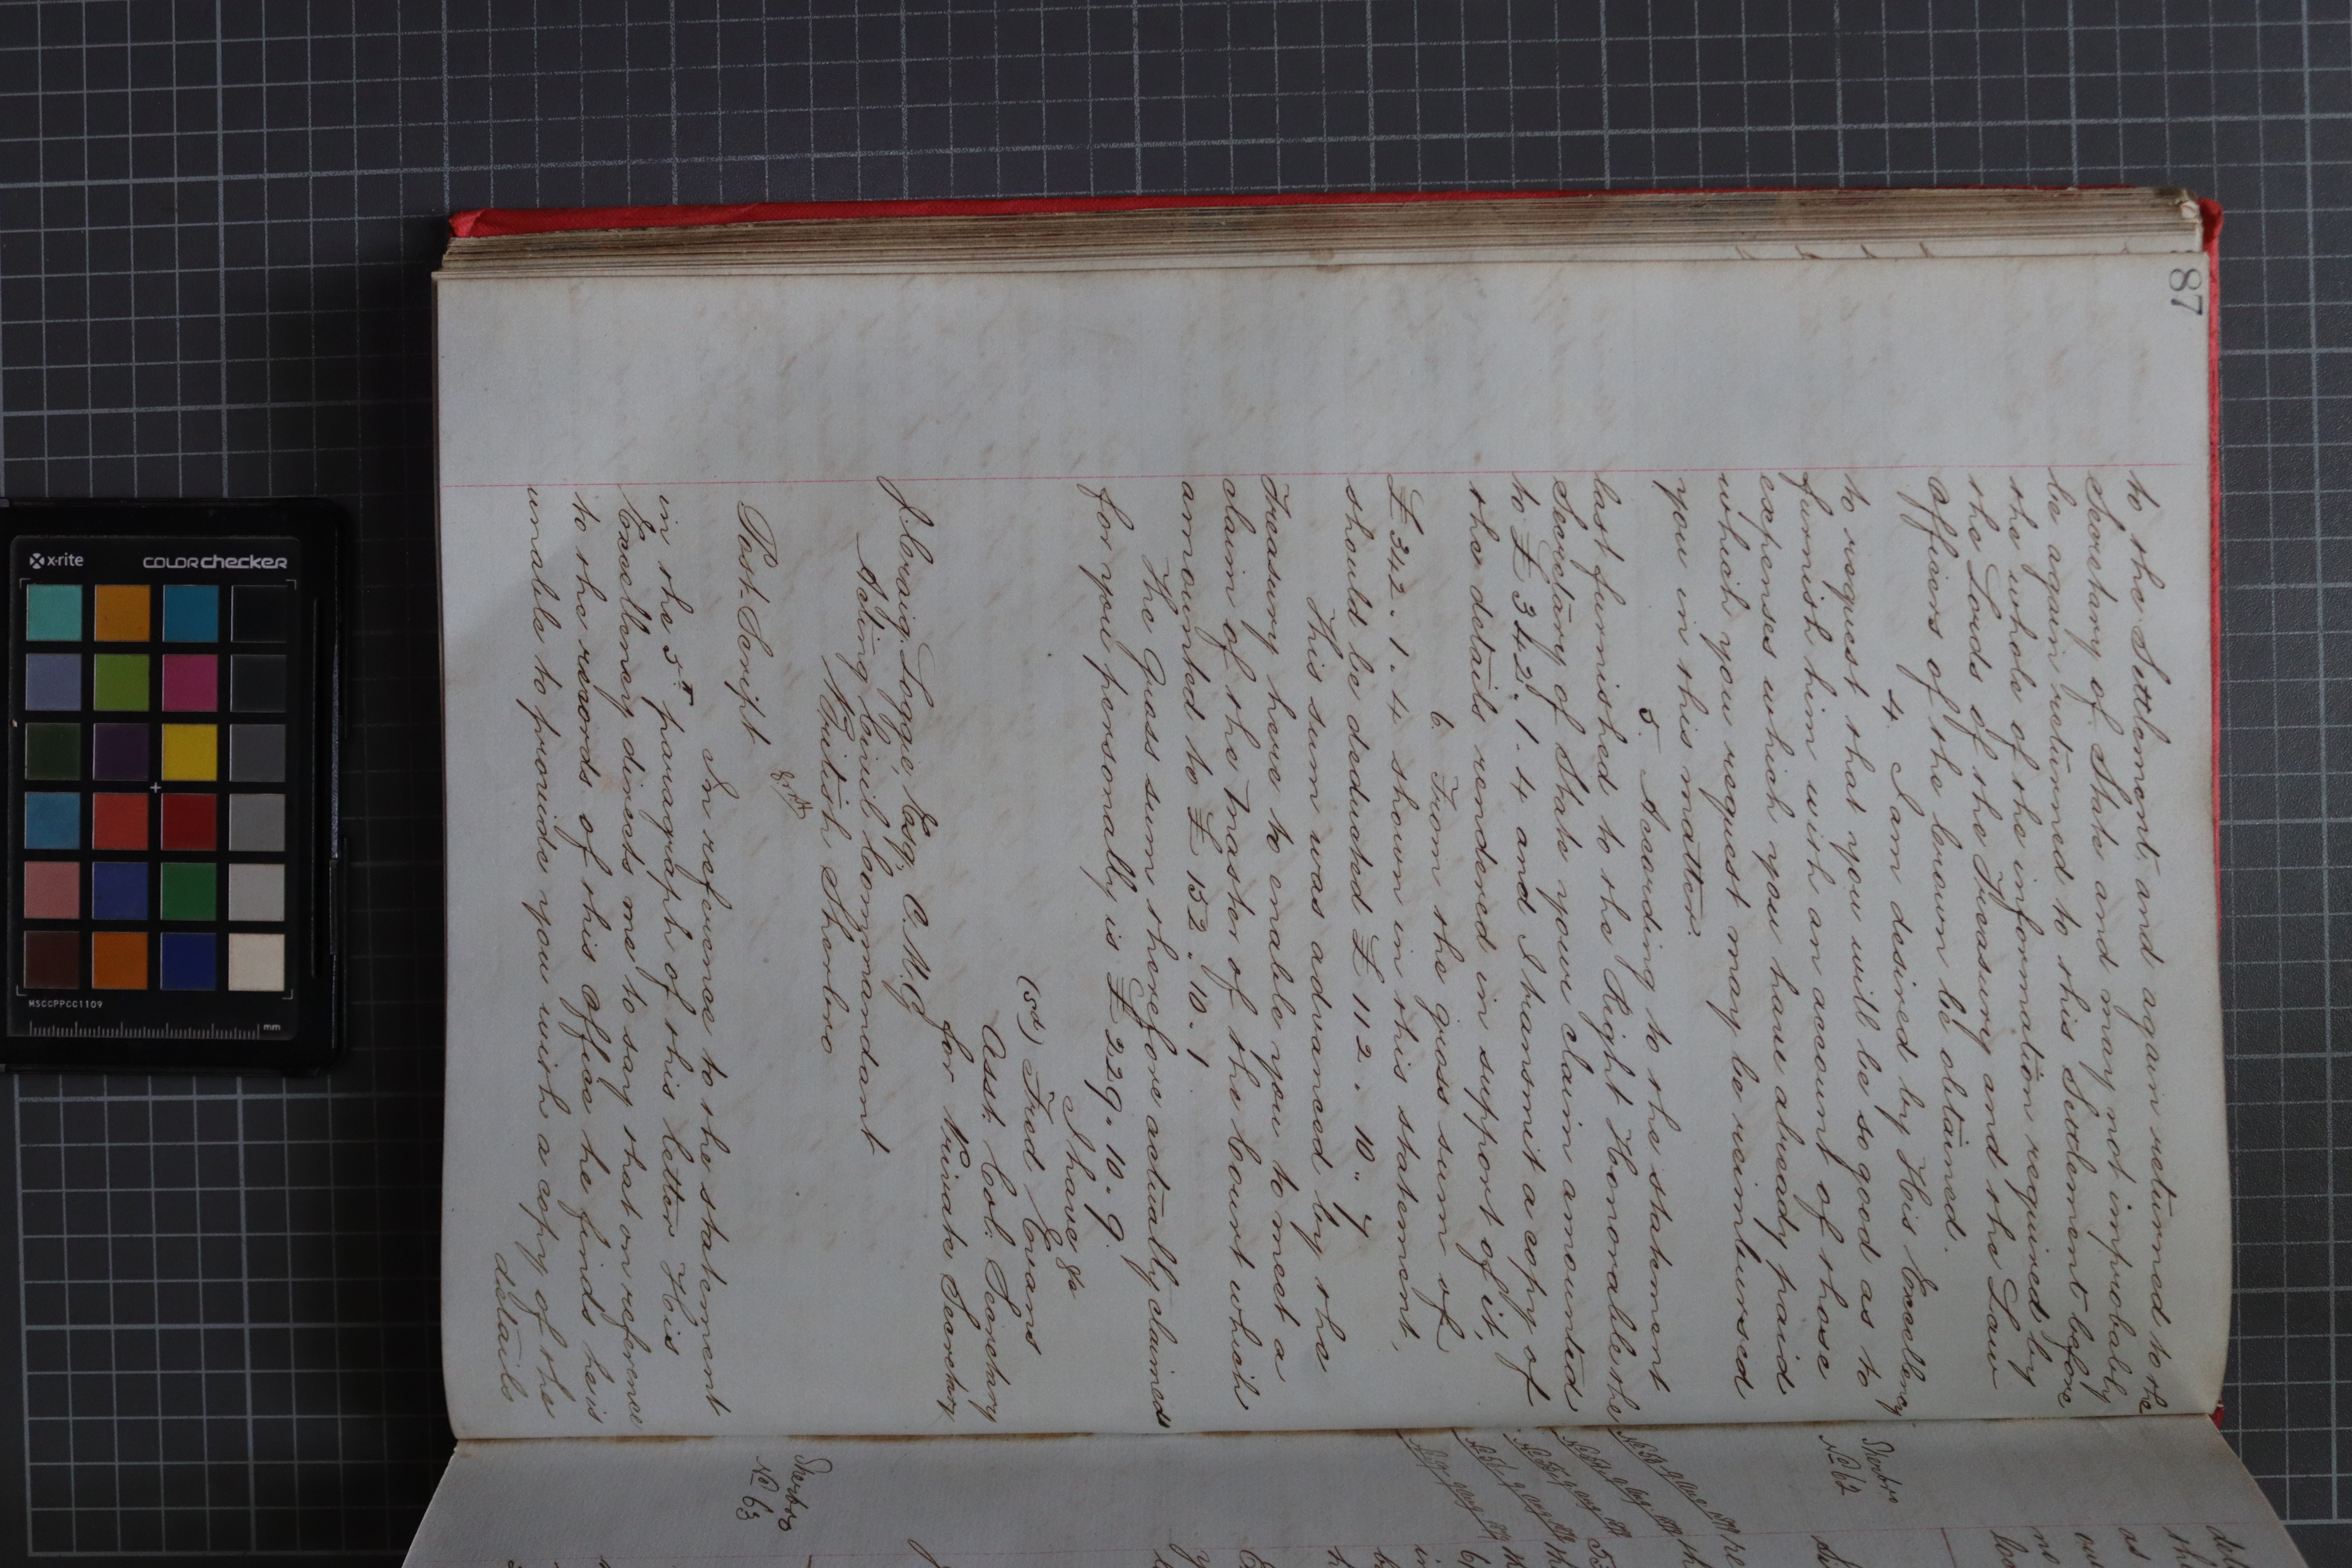 87
to the Settlement, and again returned to the
Secretary of State and may not improbably
be again returned to this Settlement before
the whole of the information required by
the Lords of the Treasury and the Law
Officers of the Crown be obtained.
4. I am desired by His Excellency
to request that you will be so good as to
furnish him with an account of those
expenses which you have already paid
which you request may be reimbursed
you in this matter.
5. According to the statement
last furnished to the Right Honorable the
Secretary of State your claim amounted
to £342.1.4 and I transmit a copy of
the details rendered in support of it,
6. From the gross sum of
£342.1.4 shown in this statement,
should be deducted £112.10.7
This sum was advanced by the
Treasury here to enable you to meet a
claim of the Master of the Court which
amounted to £152.10.1
The Gross sum therefore actually claimed
for you personally is £229.10.9.
I have &c
(sd) Fred Evans
Asst: Col: Secretary
for Private Secretary
J. Craig Loggie Esq, C.M.G
Acting Civil Commandant
British Sherbro
Post-Script
In reference to the statement
in the 5th paragraph of this letter His
Excellency directs me to say that on reference
to the records of this office he finds he is
unable to provide you with a copy of the
details
Sherbro
No 62
Sherbro
No 63
x-rite
COLORchecker
MSCCPPCC1109
mm